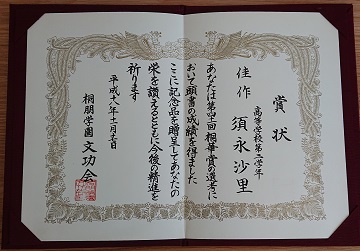 賞状
高等学校第二学年
佳作 須永沙里
あなたは第四十一回桐華賞の選考に
おいて頭書の成績を得ました
ここに記念品を贈呈してあなたの
栄を讃えるとともに今後の精進を
祈ります
平成十八年十一月十五日
桐朋学園 文功会